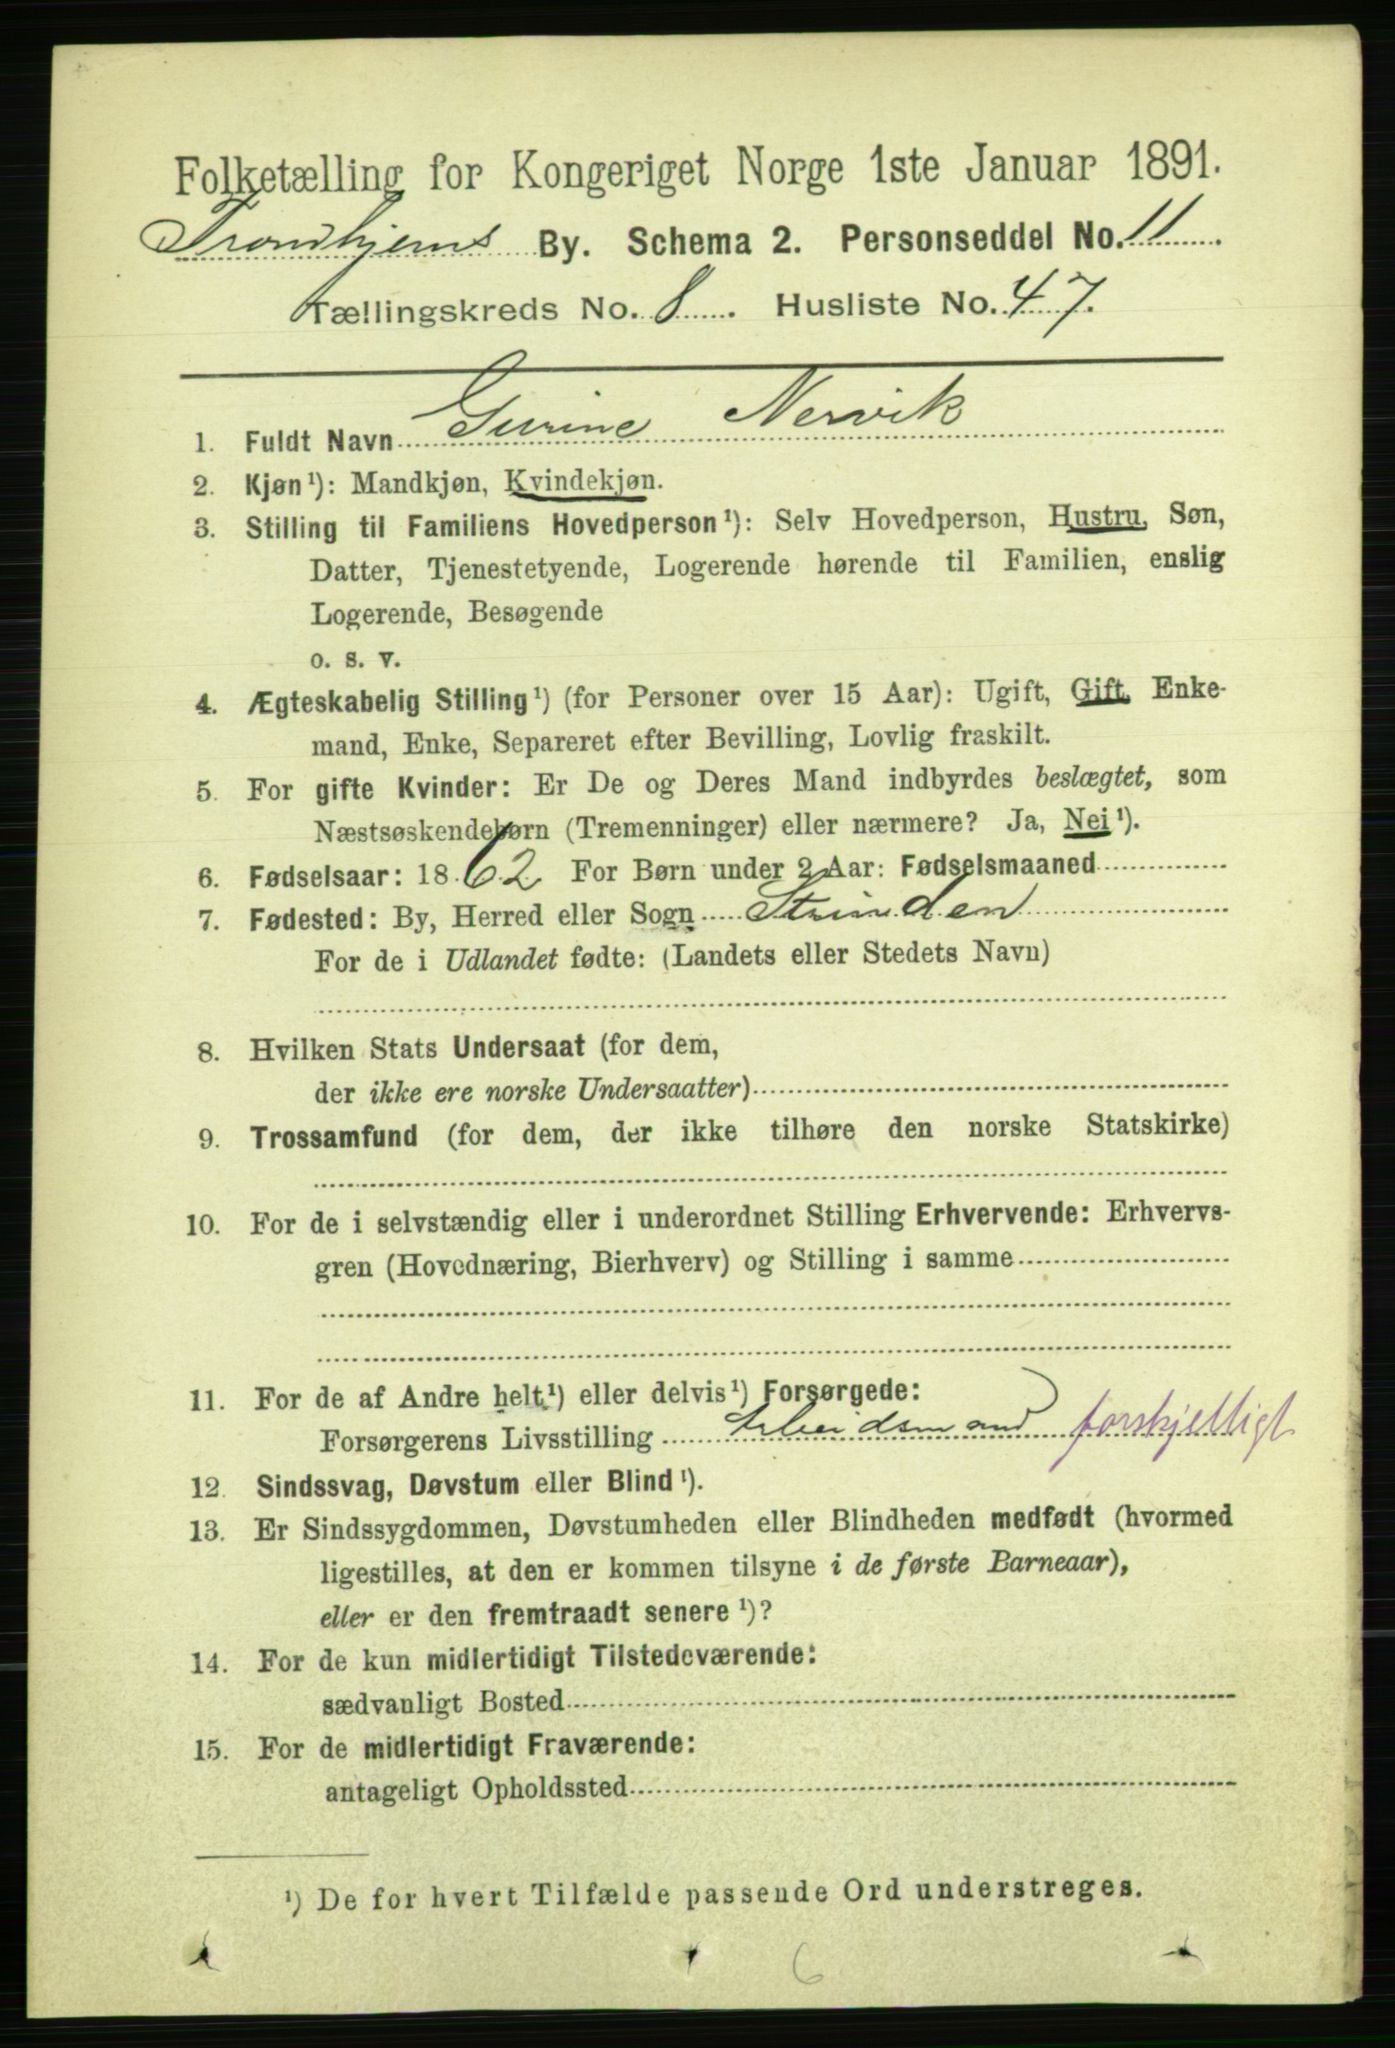 Folketælling for Kongeriget Norge 1ste Januar 1891.
Trondhjems By. Schema 2. Personseddel No. 11
Tællingskreds No. 8. Husliste No. 47.
1. Fuldt Navn Gurine Nervik
2. Kjøn¹): Mandkjøn, Kvindekjøn.
3. Stilling til Familiens Hovedperson¹): Selv Hovedperson, Hustru, Søn,
Datter, Tjenestetyende, Logerende hørende til Familien, enslig
Logerende, Besøgende
o. s. v.
4. Ægteskabelig Stilling¹) (for Personer over 15 Aar): Ugift, Gift, Enke-
mand, Enke, Separeret efter Bevilling, Lovlig fraskilt.
5. For gifte Kvinder: Er De og Deres Mand indbyrdes beslægtet, som
Næstsøskendebørn (Tremenninger) eller nærmere? Ja, Nei¹).
6. Fødselsaar: 1862 For Børn under 2 Aar: Fødselsmaaned
7. Fødested: By, Herred eller Sogn Strinden
For de i Udlandet fødte: (Landets eller Stedets Navn)
8. Hvilken Stats Undersaat (for dem,
der ikke ere norske Undersaatter)
9. Trossamfund (for dem, der ikke tilhøre den norske Statskirke)
10. For de i selvstændig eller i underordnet Stilling Erhvervende: Erhvervs-
gren (Hovednæring, Bierhverv) og Stilling i samme
11. For de af Andre helt¹) eller delvis¹) Forsørgede:
Forsørgerens Livsstilling Arbeidsmand forskjelligt
12. Sindssvag, Døvstum eller Blind¹).
13. Er Sindssygdommen, Døvstumheden eller Blindheden medfødt (hvormed
ligestilles, at den er kommen tilsyne i de første Barneaar),
eller er den fremtraadt senere¹)?
14. For de kun midlertidigt Tilstedeværende:
sædvanligt Bosted
15. For de midlertidigt Fraværende:
antageligt Opholdssted
¹) De for hvert Tilfælde passende Ord understreges.
6